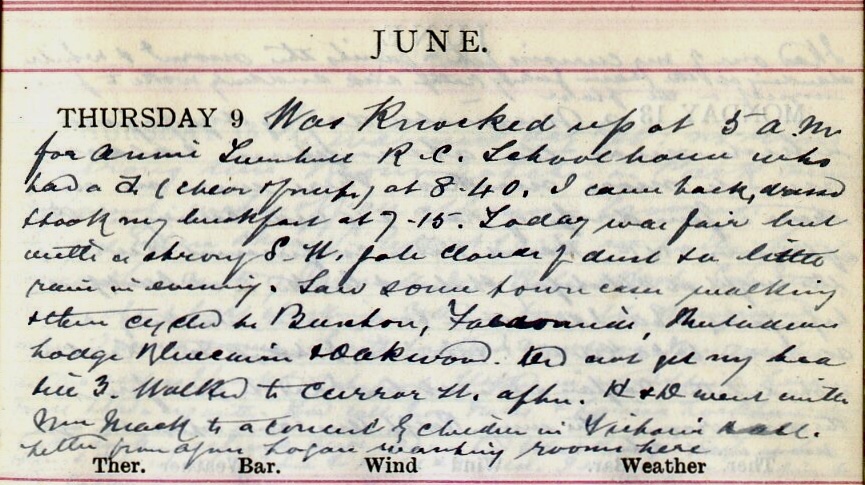 JUNE.
THURSDAY 9 Was Knocked up at 5 a.m.
for Annie Turnbull R.C. Schoolhouse who
had a F. at 8-40. I came back, dressed
& took my breakfast at 7-15. Today was fair but
with a strong S.W. gale clouds of dust & a little
rain in evening. Saw some town cases walking
& then cycled to Buxton,
Lodge & Oakwood. Did not get my tea
till 3. Walked to Curror St. after. K & D went with
Mrs Mack to a concert by children in hall.
Letter from Logan wanting rooms here
Ther. Bar. Wind Weather